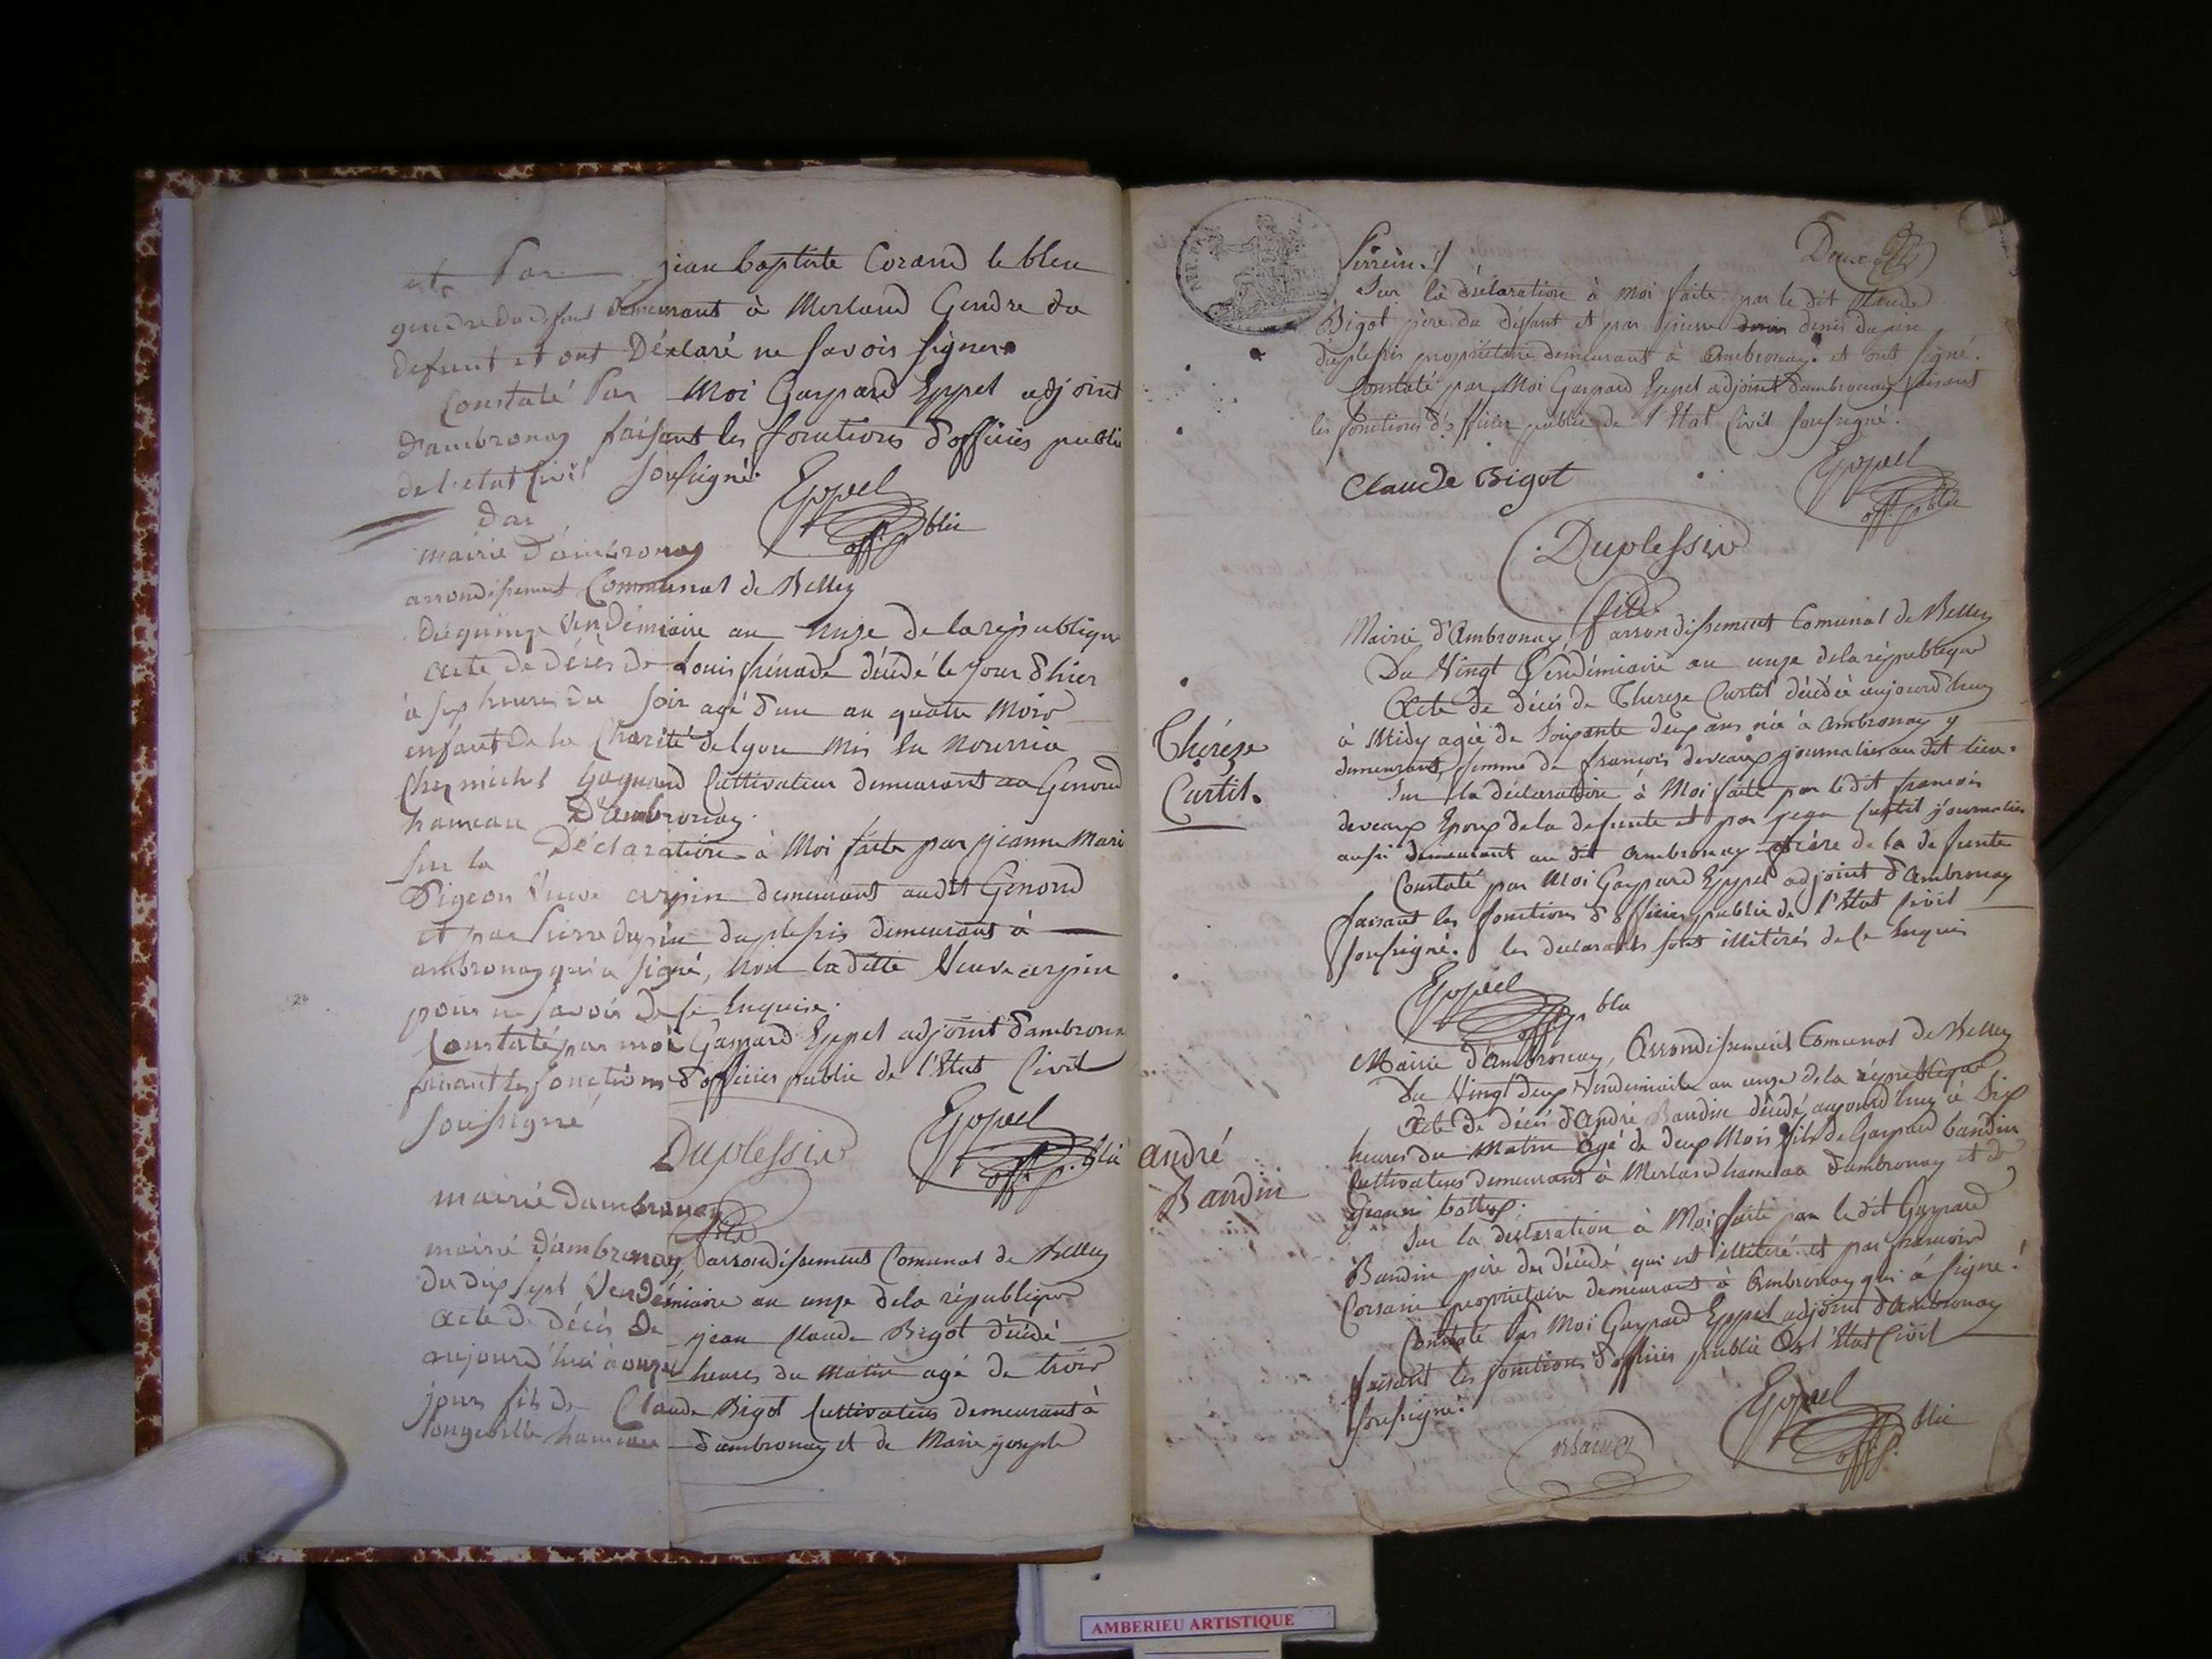 et Par jean baptiste Corand le bleu
gendre du defunt demeurant à Merland Gendre du
defunt et ont Déclaré ne savoir signer
Constaté Par Moi Gaspard Eppel adjoint
d'ambronay faisant les fonctions d'officier public
de l'etat Civil soussigné.
Eppel
off. p. blic
Dar
mairie d'ambronay
arrondissement Communal de Belley
Du quinze Vendémiaire an onze de la république
Acte de décès de Louis décédé le jour d'hier
à sep heures du soir agé d'un an quatre Mois
enfant de la Charité de lyon mis en nourrice
Chez michel Cultivateur demeurant au Genoud
hameau D'ambronay.
Sur la Déclaration à Moi faite par jeanne Mari
Pigeon Veuve arpin demeurant audit Genoud
et par Pierre dupin duplessis demeurant à
ambronay qui a signé, non la ditte Veuve arpin
pour ne savoir de ce Enquise.
Constaté par moi Gaspard Eppel adjoint d'ambrona
faisant les fonctions d'officier public de l'Etat Civil
soussigné
Duplessis
Eppel
off. p. blic
mairie dambronay
mairie d'ambronay, arrondissement Comunal de Belley
du dix sept Vendémiaire an onze de la république
Acte de décès de jean Claude Bigot décédé
aujourd'hui à onze heures du Matin agé de trois
jours fils de Claude Bigot Cultivateur demeurant à
longeville hameau d'ambronay et de Marie josephe
Deux
Perrein./
Sur la déclaration à moi faite par le dit Claude
Bigot père du défunt et par pierre denis dupin
duplessis propriétaire demeurant à Ambronay. et ont signé.
Constaté par Moi Gaspard Eppel adjoint d'ambronay faisant
les fonctions d'officier public de l'Etat Civil soussigné.
Claude Bigot
Eppel
off. p. blic
Duplessis
Mairie d'Ambronay, arrondissement Comunal de Belley
Du Vingt Vendémiaire an onze de la république
Acte de décès de Thereze Curtil décédée aujourd'huy
à Midy agée de soixante deux ans née à ambronay y
demeurant, femme de francois deveaux journalier au dit lieu.
Sur la déclaration à Moi faite par le dit francois
deveaux Epoux de la defunte et par jean Curtil journalier
aussi demeurant au dit ambronay frère de la defunte
Constaté par Moi Gaspard Eppel adjoint d'Ambronay
faisant les fonctions d'officier public de l'Etat Civil
soussigné. les declarants sont illitérés de ce Enquis
Thérèze
Curtil.
Eppel
off. p. blic
Mairie d'Ambronay, Arrondissement Comunal de Belley
du Vingt deux Vendemiaire an onze de la république
Acte de décès d'André Baudin décédé aujourd'huy à Six
heures du Matin âgé de deux Mois fils de Gaspard baudin
Cultivateur demeurant à Merland hameau d'ambronay et de
Sur la déclaration à Moi faite par le dit Gaspard
Baudin père du décédé, qui est illitéré. et par francois
propriétaire demeurant à Ambronay qui a signé.
Constaté Par Moi Gaspard Eppel adjoint d'Ambronay
faisant les fonctions d'officier public de l'Etat Civil
soussigné.
andré
Baudin
Eppel
off. p. blic
AMBERIEU ARTISTIQUE